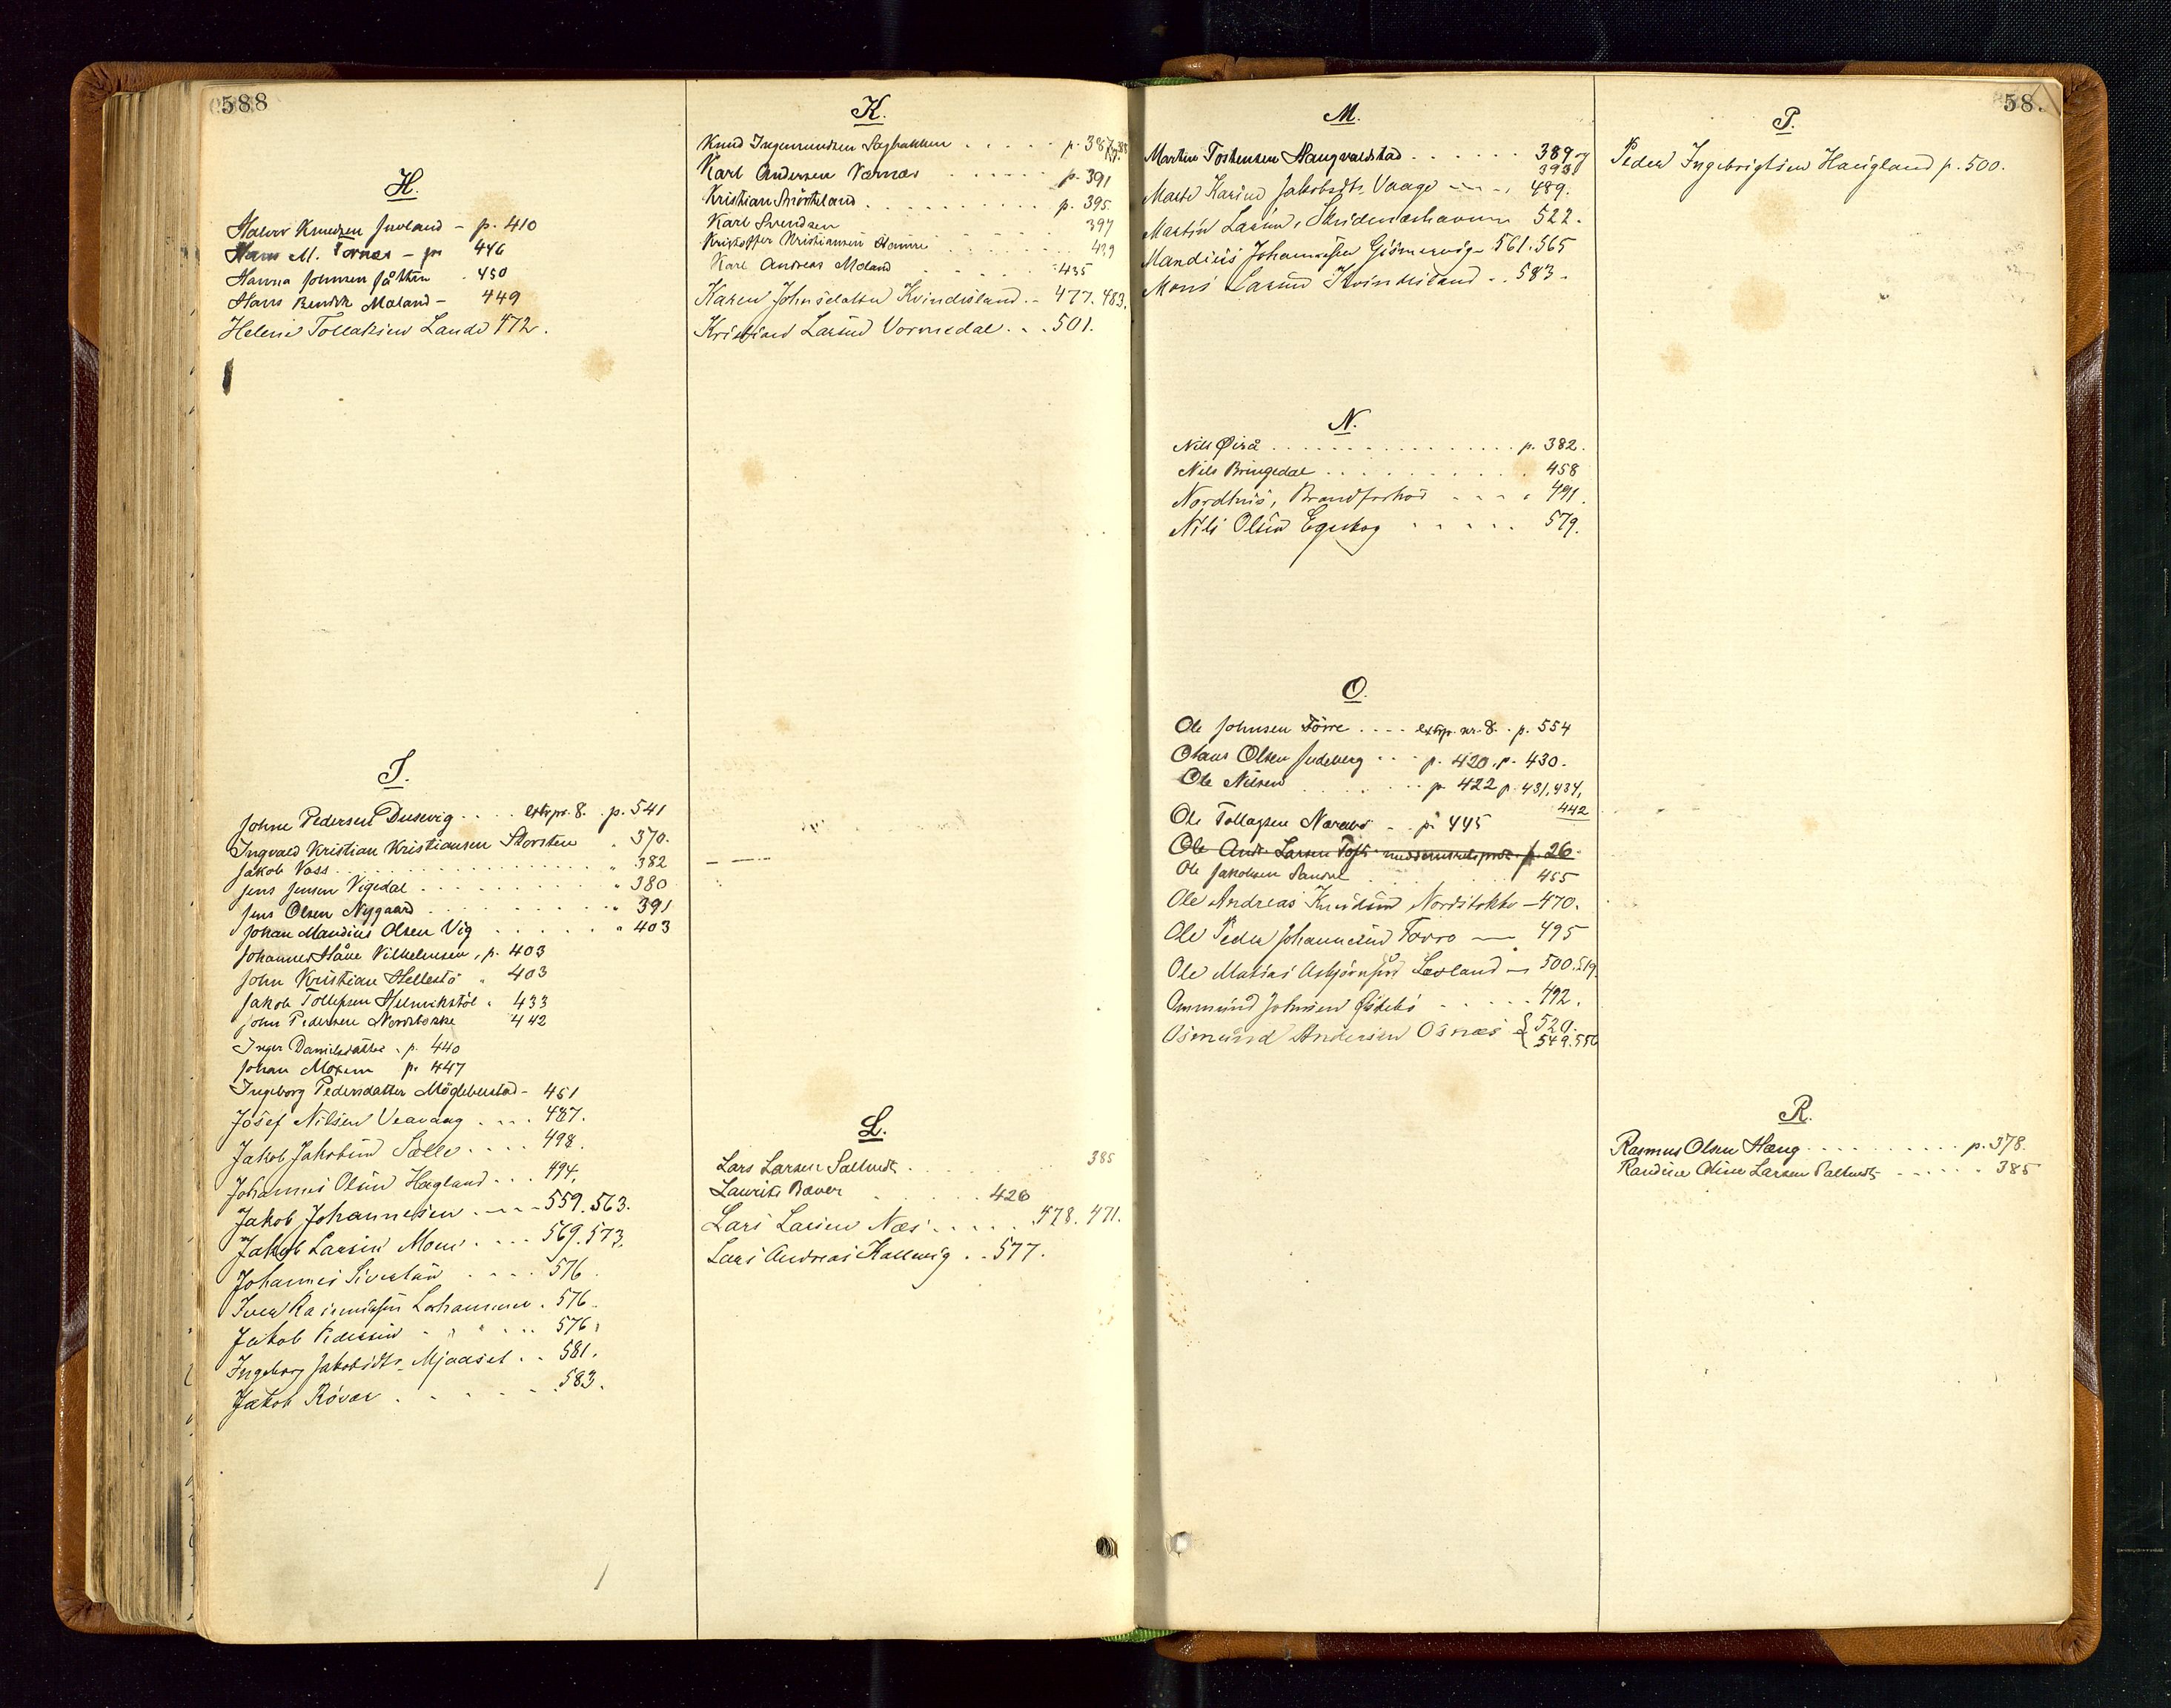 588
H.
Halvor Knudsen - p. 410
Hans M. - p. 446
Hanna Johnsen 450
Hans Bendik Moland - 449
Helene Tollaksen Lande 472.
I.
Johne Pedersen Dusevig .... extrpr. 8. p. 541
Ingvald Kristian Kristiansen Storsten 370.
Jakob Vass " 382
Jens Jensen Vigedal " 380
Jens Olsen Nygaard " 391
Johan Mandius Olsen Vig " 403
Johannes Håne Vilhelmsen, p. 403
John Kristian Hellestö " 403
Jakob Tollefsen Helmikstöl " 433
John Pedersen 442
Inger Danielsdatter . p. 440
Johan p. 447
Ingeborg Pedersdatter Möglebustad - 451
Josef Nilsen Veavaag .... 487.
Jakob Jakobsen .... 498.
Johannes Olsen Hagland ... 494.
Jakob Johannesen 559. 563.
Jakob Larsen .... 569. 573.
Johannes .... 576.
Iver Rasmussen . 576.
Jakob Pedersen - " " .. 576.
Ingeborg Jakobsdtr. Mjaaset .. 581.
Jakob Rövær . - - - - 583.
K.
Knud Ingemundsen ..... p. 387
Karl Andersen Varnæs ..... p. 391
Kristian p. 395
Karl Svendsen 397
Kristoffer Kristiansen
Karl Andreas Moland 435
Karen Johnsdatter Kvindesland. - 477. 483.
Kristian Larsen Vormedal. . . 501.
L.
Lars Larsen 385
Laurits Bæver ..... 426
Lars Larsen Næs ..... 478. 471.
Lars Andreas Kallevig .. 577.
58
M.
Martin Tostensen Haugvaldstad ...... 389 og
393
Malte Karine Jakobsdtr. Vaage - - - 489.
Martin Larsen, 522.
Mandius Johannessen - 561. 565
Mons Larsen Kvindesland .. 583.
N.
Nils Øirå p. 382.
Nils Bringedal 458
Nordhus, - - - 491.
Nils Olsen Egeskog ..... 579.
O.
Ole Johnsen Förre .... extrpr. nr. 8. p. 554
Olaus Olsen ... p. 420, p. 430.
Ole Nilsen p. 422 p. 431, 434,
442
Ole Tollagsen - . p. 445
Ole Andr. Larsen p. 26
Ole Jakobsen 455
Ole Andreas Knudsen - 470.
Ole Peder Johannesen Förre - 495
Ole Matias Asbjörnsen - 500. 519
Ommund Johnsen ..... 492.
Osmund Andersen Osnæs { 520.
549. 556
P.
Peder Ingebrigtsen Haugland p. 500.
R.
Rasmus Olsen Haug p. 378.
Randine Oline Larsen " 385